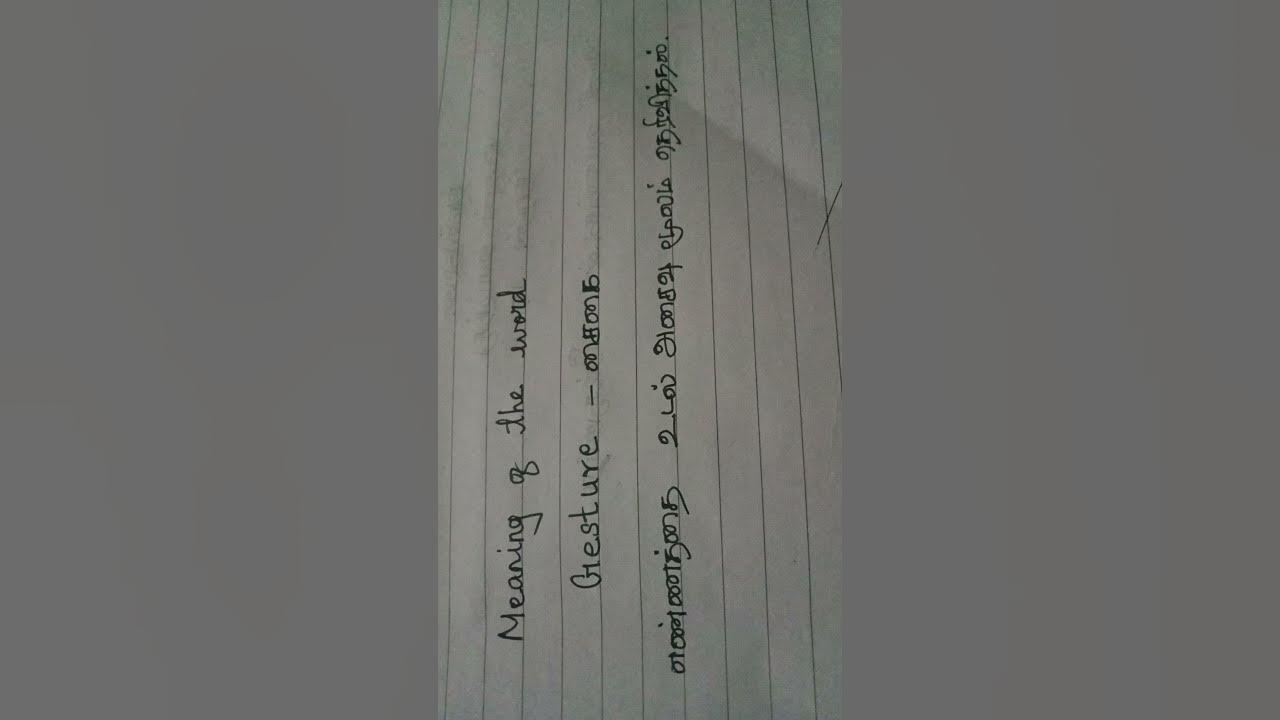 Meaning of the word
Gesture - சைகை
எண்ணத்தை உடல் அசைவு மூலம் தெரிவித்தல்.